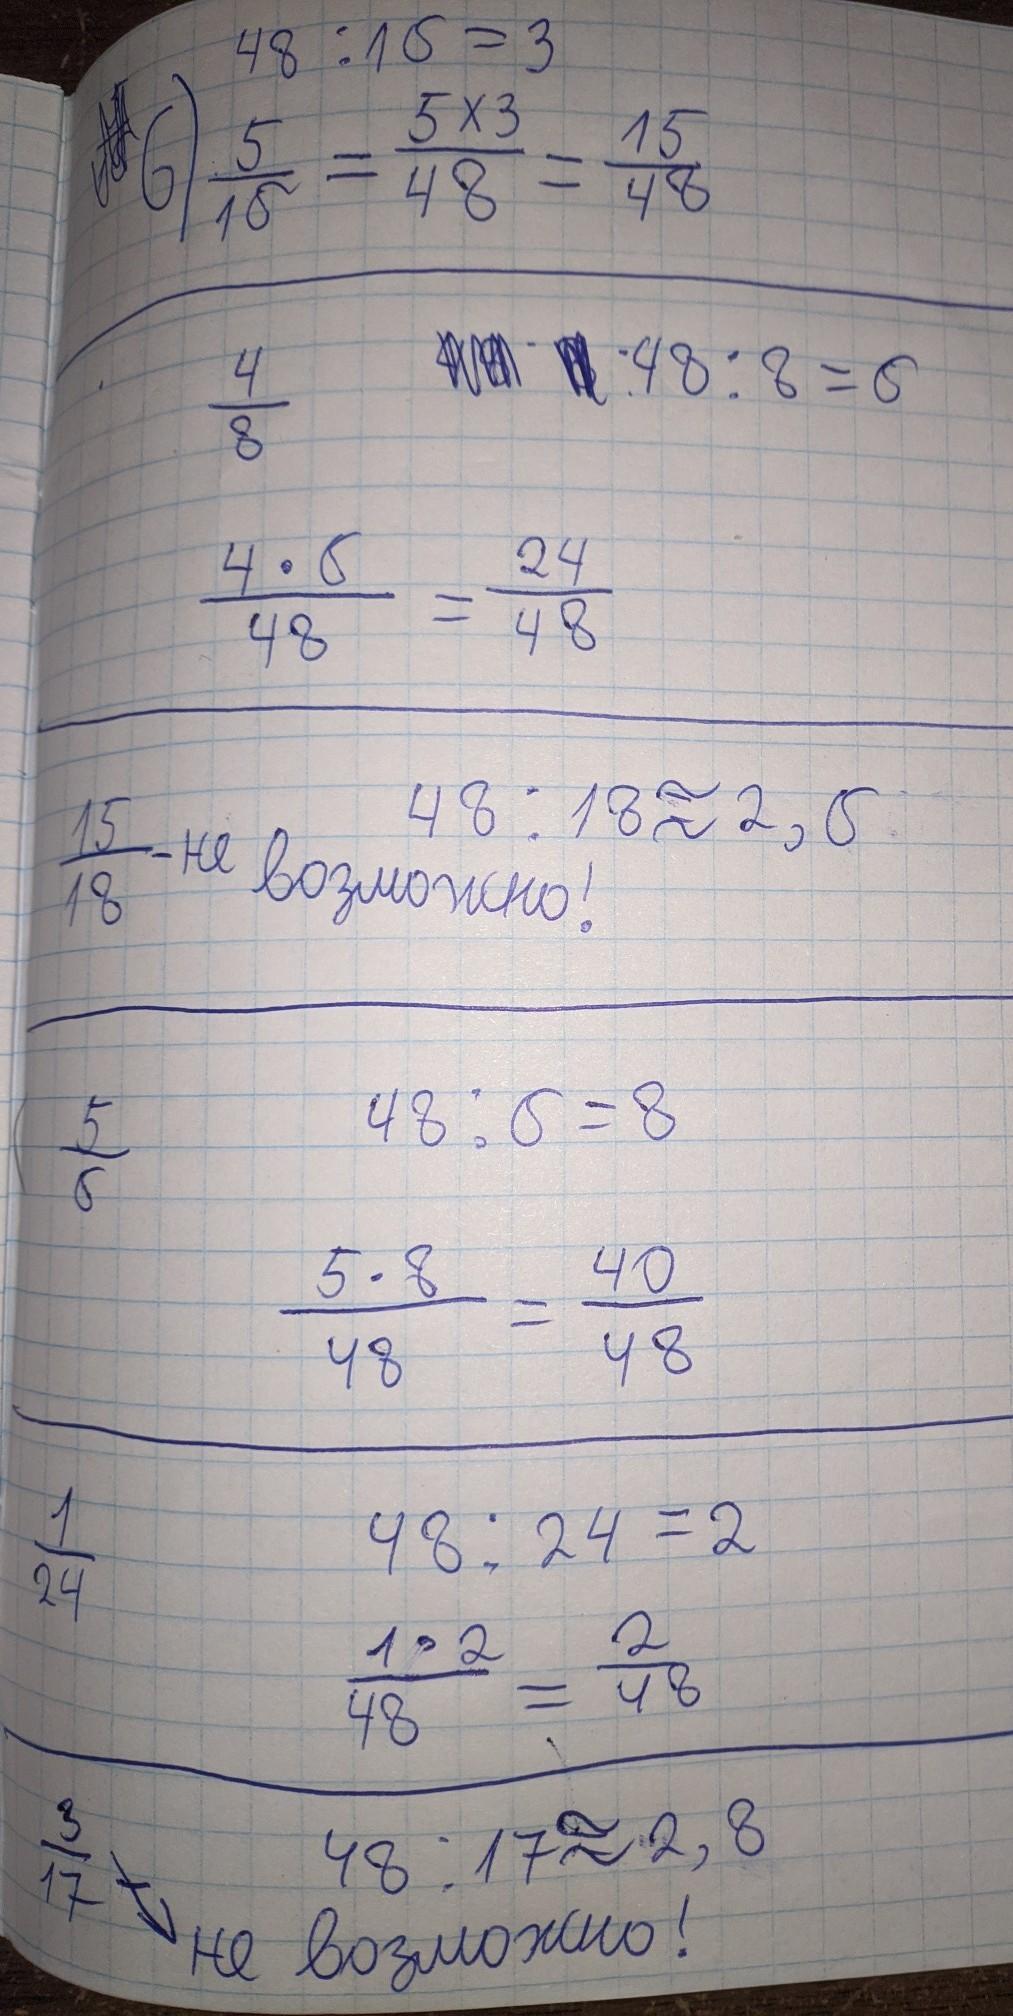 48 : 16 = 3
б) 5/16 = 5×3/48 = 15/48
4/8 48 : 8 = 6
4 · 6/48 = 24/48
48 : 18 ≈ 2,6
15/18 - не возможно!
5/6 48 : 6 = 8
5 · 8/48 = 40/48
1/24 48 : 24 = 2
1 · 2/48 = 2/48
3/17 48 : 17 ≈ 2,8
не возможно!